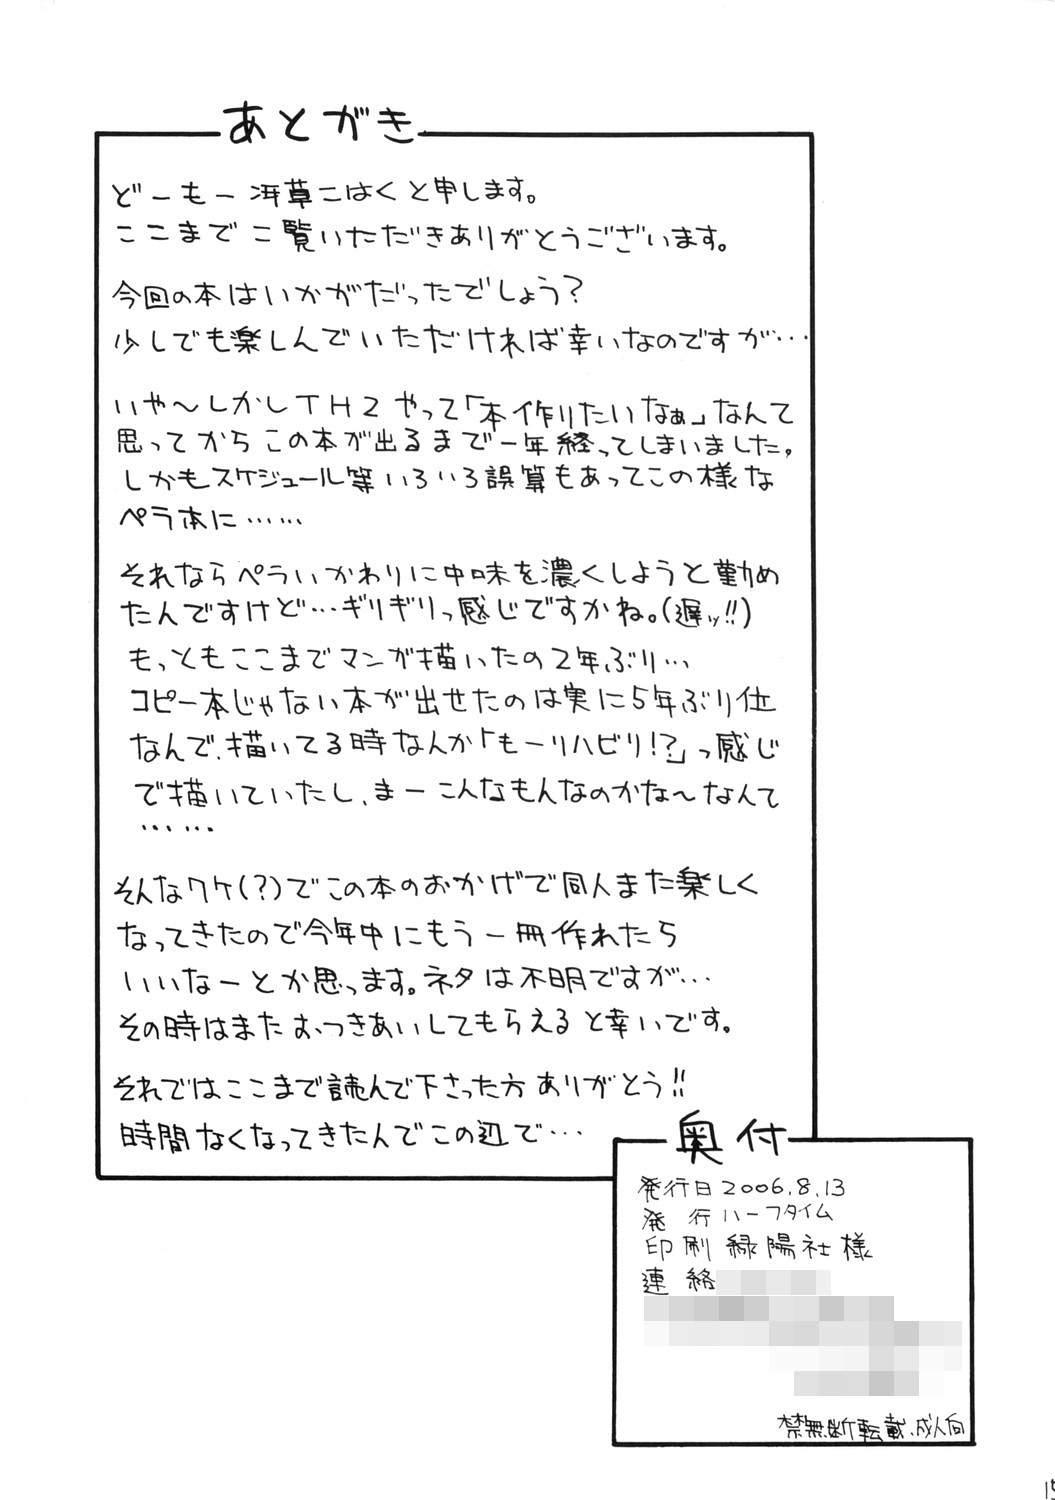 あとがき
どーもー冴草こはくと申します。
ここまでご覧いただきありがとうございます。
今回の本はいかがだったでしょう?
少しでも楽しんでいただければ幸いなのですが…
いや〜しかしTH2やって「本作りたいなぁ」なんて
思ってからこの本が出るまで一年経ってしまいました。
しかもスケジュール等いろいろ誤算もあってこの様な
ペラ本に……
それならペラいかわりに中味を濃くしようと勤め
たんですけど…ギリギリっ感じですかね。(遅ッ!!)
もっともここまでマンガ描いたの2年ぶり…
コピー本じゃない本が出せたのは実に5年ぶり位
なんで、描いてる時なんか「もーリハビリ!?」っ感じ
で描いていたし、まーこんなもんなのかな〜なんて
……
そんなワケ(?)でこの本のおかげで同人また楽しく
なってきたので今年中にもう一冊作れたら
いいなーとか思っます。ネタは不明ですが…
その時はまたおつきあいしてもらえると幸いです。
それではここまで読んで下さった方ありがとう!!
時間なくなってきたんでこの辺で…
奥付
発行日 2006.8.13
発行 ハーフタイム
印刷 緑陽社様
連絡
禁無断転載、成人向
15